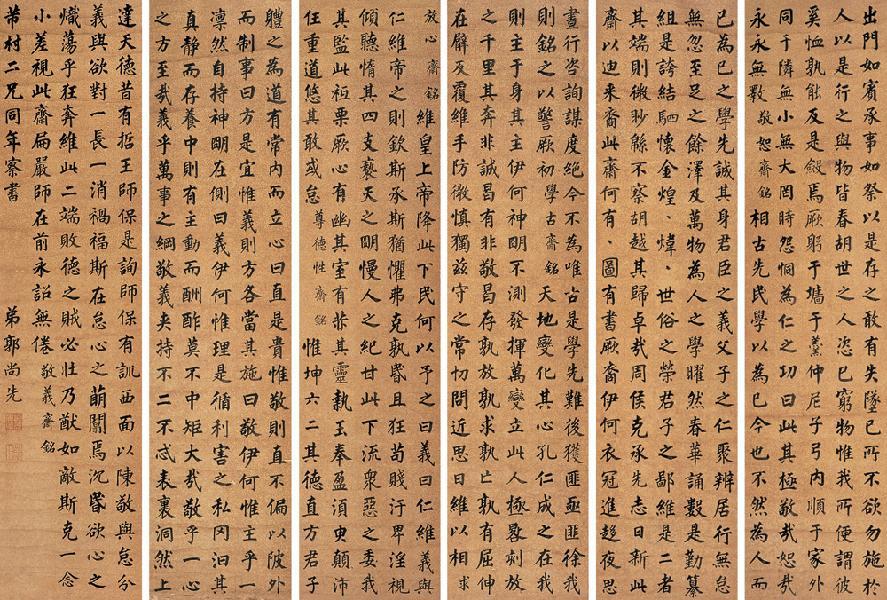 出門如賓承事如祭以是存之敢有失墜已所不欲勿施於
人以是行之與物皆春胡世之人恣已窮物惟我所便謂彼
奚恤孰能反是斂焉厥躬于墻于羹仲尼子弓內順于家外
同于隣無小無大罔時怨恫為仁之功曰此其極敬哉恕哉
永永無斁 敬恕齋銘 相古先民學以為已今也不然為人而
已為已之學先誠其身君臣之義父子之仁聚辨居行無怠
無忽至足之餘澤及萬物為人之學曄然春華誦數是勤纂
組是誇結駟懷金煌、煒、世俗之榮君子之鄙維是二者
其端則微眇綿不察胡越其歸卓哉周侯克承先志日新此
齋以迪來裔此齋何有、圖有書厥裔伊何衣冠進趨夜思
晝行咨詢謀度絕今不為唯古是學先難後獲匪亟匪徐我
則銘之以警厥初 學古齋銘 天地變化其心孔仁成之在我
則主于身其主伊何神明不測發揮萬變立此人極晷刻放
之千里其奔非誠曷有非敬曷存孰放孰求孰亡孰有屈伸
在臂反覆維手防微慎獨茲守之常切問近思曰維以相 求
放心齋銘 維皇上帝降此下民何以予之曰義曰仁維義與
仁維帝之則欽斯承斯猶懼弗克孰昏且狂苟賤汙卑淫視
傾聽惰其四支褻天之明慢人之紀甘此下流眾惡之委我
其監此祗栗厥心有幽其室有赫其靈執玉奉盈須臾顛沛
任重道悠其敢或怠 尊德性齋銘 惟坤六二其德直方君子
體之為道有常內而立心曰直是貴惟敬則直不偏以陂外
而制事曰方是宜惟義則方各當其施曰敬伊何惟主乎一
凛然自持神明在側曰義伊何惟理是循利害之私罔汩其
直靜而存養中則有主動而酬酢莫不中矩大哉敬乎一心
之方至哉義乎萬事之綱敬義夾持不二不忒表裏洞然上
達天德昔有哲王師保是詢師保有訓西面以陳敬與怠分
義與欲對一長一消禍福斯在怠心之萌闒焉沉昏欲心之
熾蕩乎狂奔維此二端敗德之賊必壯乃猷如敵斯克一念
小差視此齋扁嚴師在前永詔無倦 敬義齋銘
芾村二兄同年察書 弟郭尚先